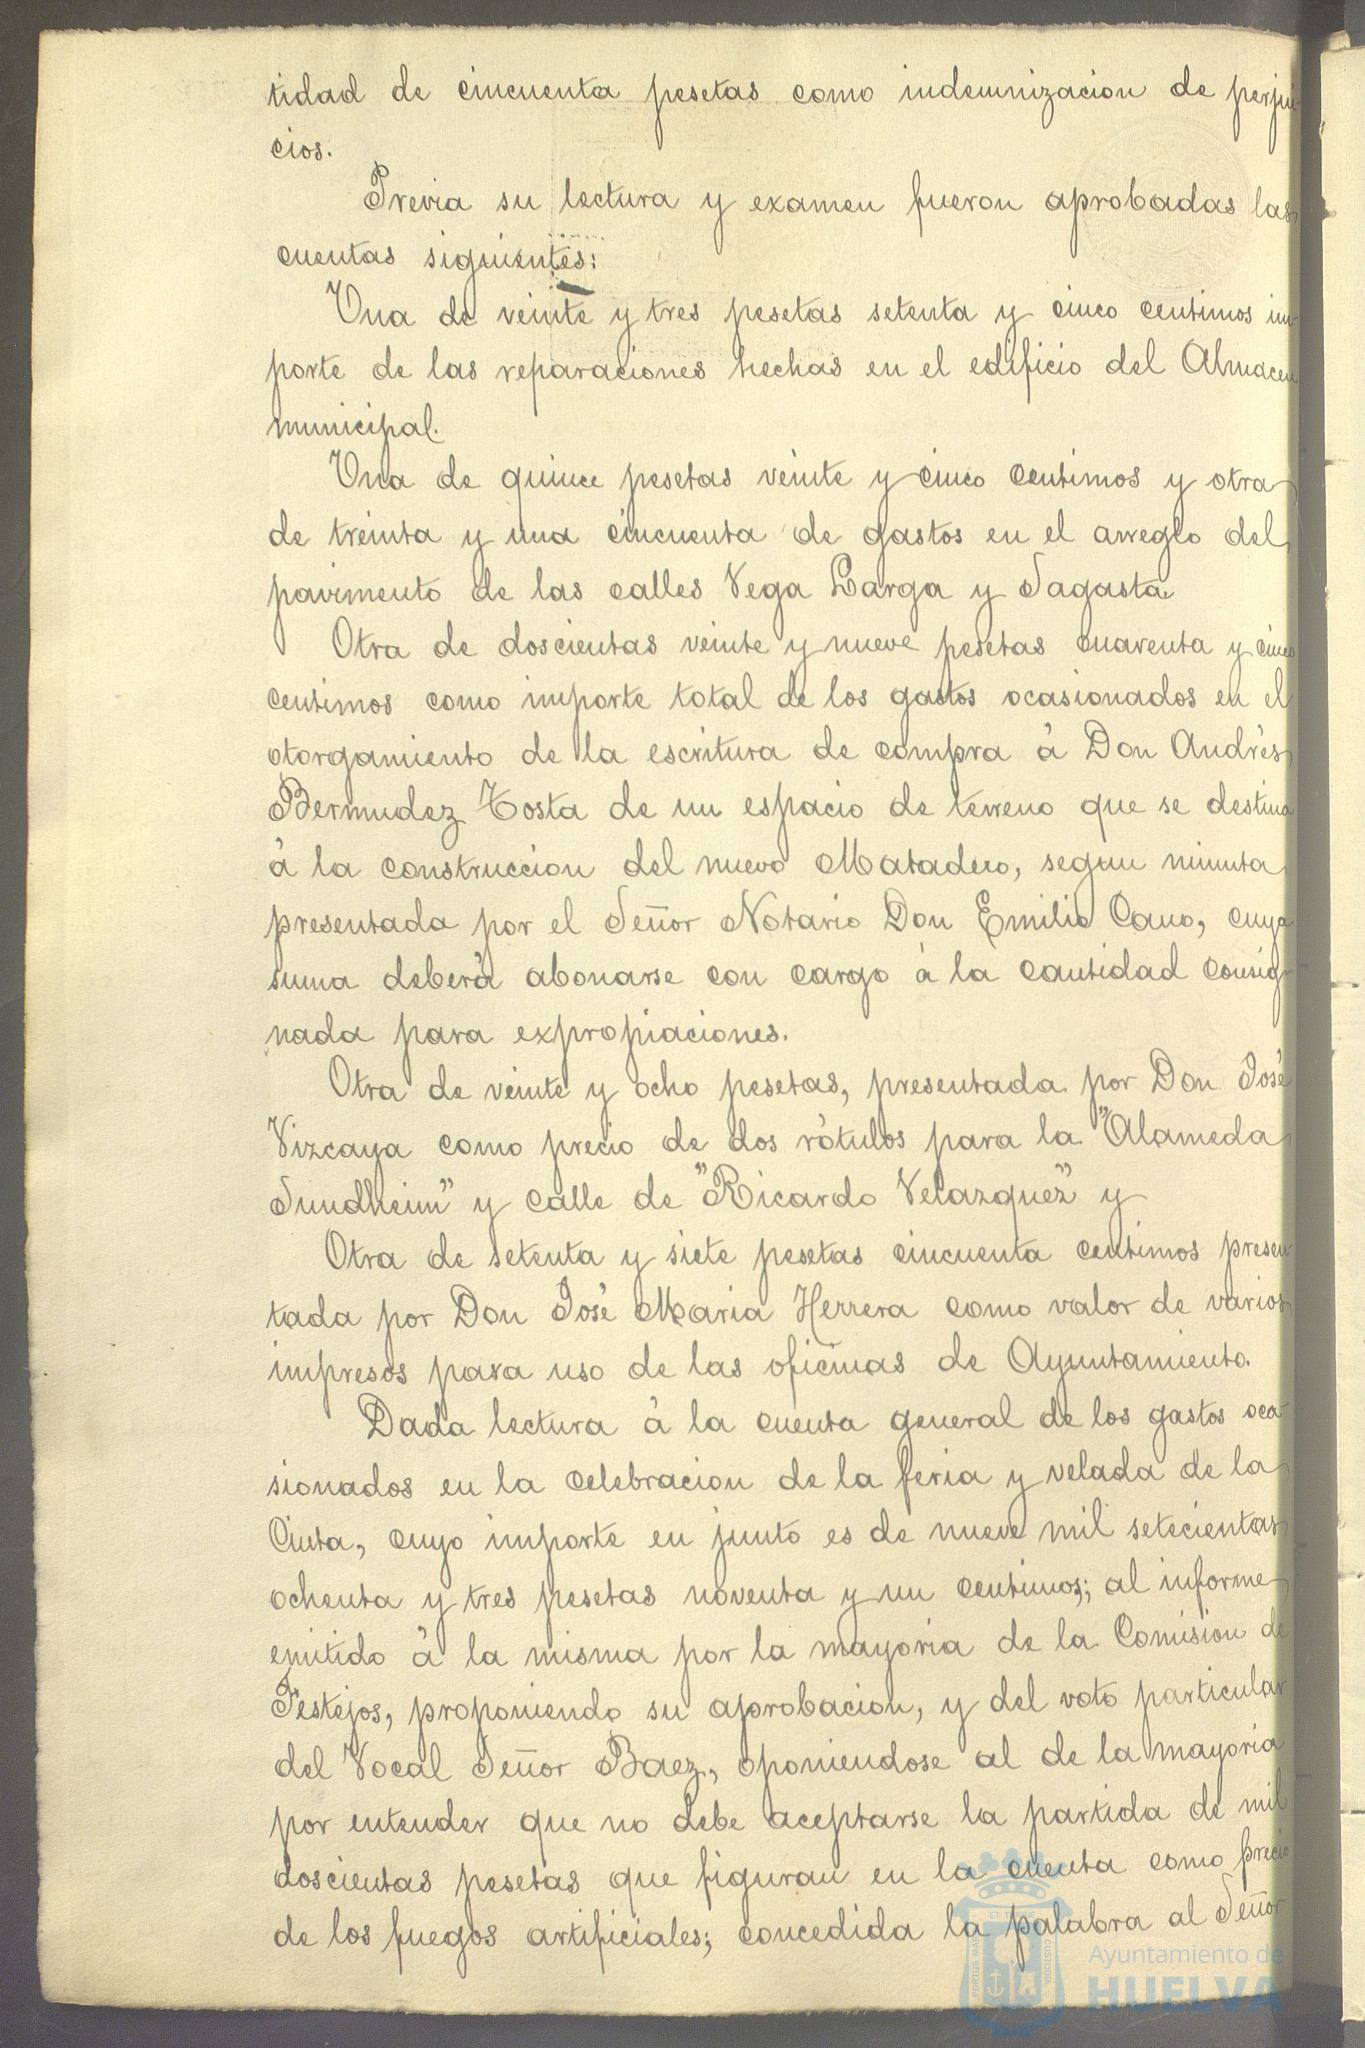 tidad de cincuenta pesetas como indemnizacion de perjui-
cios.
Previa su lectura y examen fueron aprobadas las
cuentas siguientes:
Una de veinte y tres pesetas setenta y cinco centimos im-
porte de las reparaciones hechas en el edificio del Almacen
municipal.
Una de quince pesetas veinte y cinco centimos y otra
de treinta y una cincuenta de gastos en el arreglo del
pavimento de las calles Vega Larga y Sagasta
Otra de doscientas veinte y nueve pesetas cuarenta y cinco
centimos como importe total de los gastos ocasionados en el
otorgamiento de la escritura de compra á Don Andrés
Bermudez Tosta de un espacio de terreno que se destina
á la construccion del nuevo Matadero, segun minuta
presentada por el Señor Notario Don Emilio Cano, cuya
suma deberá abonarse con cargo á la cantidad consig-
nada para expropiaciones.
Otra de veinte y ocho pesetas, presentada por Don José
Vizcaya como precio de dos rótulos para la "Alameda
Sundheim" y calle de "Ricardo Velazquez" y
Otra de setenta y siete pesetas cincuenta centimos presen-
tada por Don José Maria Herrera como valor de varios
impresos para uso de las oficinas de Ayuntamiento.
Dada lectura á la cuenta general de los gastos oca-
sionados en la celebracion de la feria y velada de la
Cinta, cuyo importe en junto es de nueve mil setecientas
ochenta y tres pesetas noventa y un centimos; al informe
emitido á la misma por la mayoria de la Comision de
Festejos, proponiendo su aprobacion, y del voto particular
del Vocal Señor Baez, oponiendose al de la mayoria
por entender que no debe aceptarse la partida de mil
doscientas pesetas que figuran en la cuenta como precio
de los fuegos artificiales; concedida la palabra al Señor
Ayuntamiento de
HUELVA